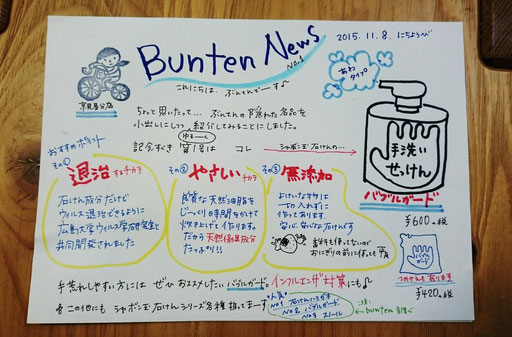 Bunten News
No.1
2015.11.8. にちようび
こんにちは、ぶんてんでーす
京見会分店
あわタイプ
ちょっと思いたって… ぶんてんの隠れた名品を
小出しにしつつ紹介してみることにしました。
記念すべき第1号は コレ
シャボン玉石けんの…
手洗い
せっけん
バブルガード
¥600+税
おすすめポイント
その①
退治するチカラ
石けん成分だけで
ウィルス退治できるように
広島大学ウィルス学研究室と
共同開発されました
その②
やさしいチカラ
良質な天然油脂を
じっくり時間をかけて
炊きあげて作ります。
だから天然保湿成分
たっぷり!!
その③
無添加
よけいなモノは
一切入れずに
作ってあります。
安心、安全な石けんです
おにぎりの前に使っても
バブルガード
つめかえも有ります
¥420+税
手荒れしやすい方には ぜひおススメしたいバブルガード。インフルエンザ対策にも
この他にも シャボン玉石けんシリーズ各種揃ってまーす
人気
No1 石けんハミガキ
No2 バブルガード
No3 スノール
注:
bunten調べ